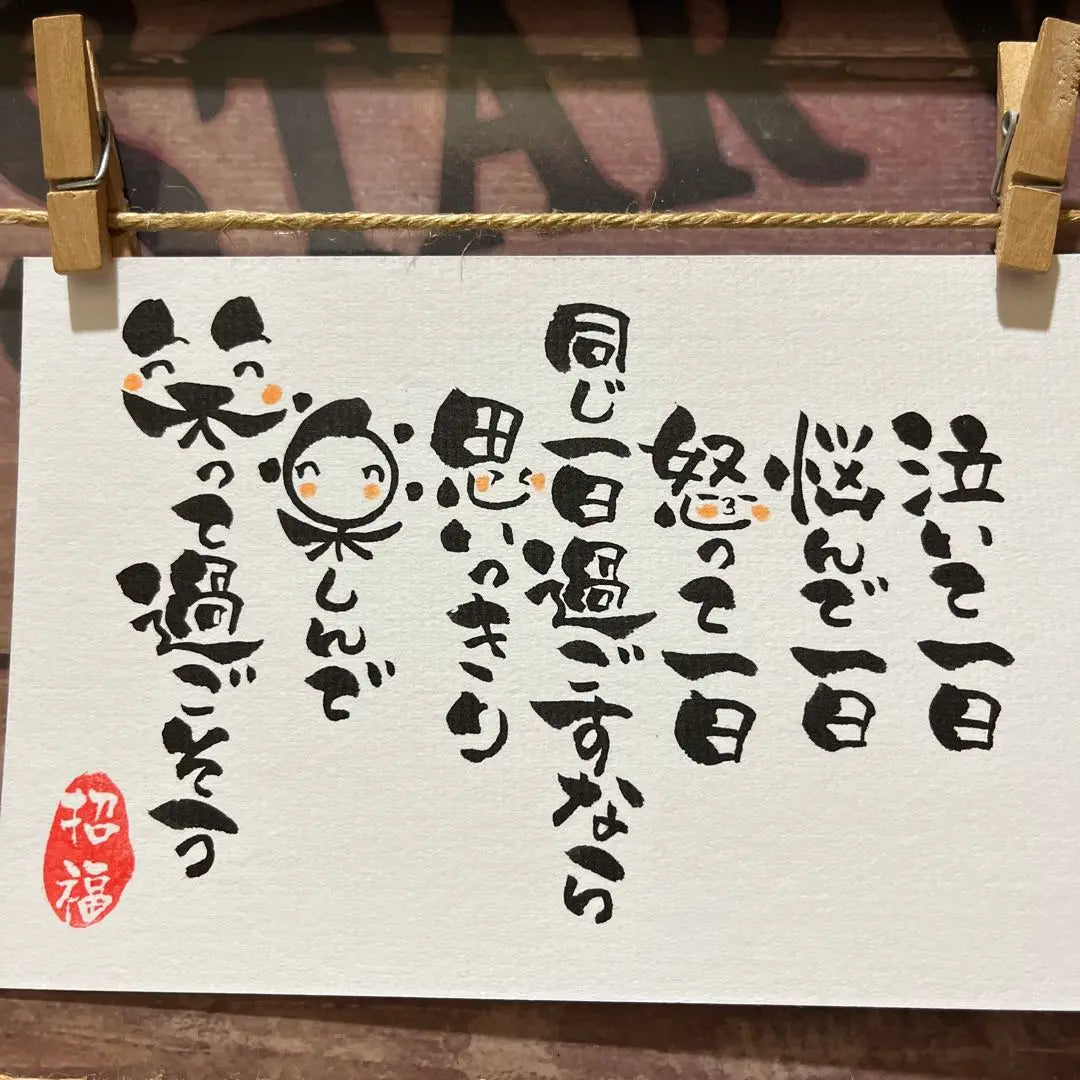 泣いて一日
悩んで一日
怒って一日
同じ一日過ごすなら
思いっきり
楽しんで
笑って過ごそう
招福
STAR